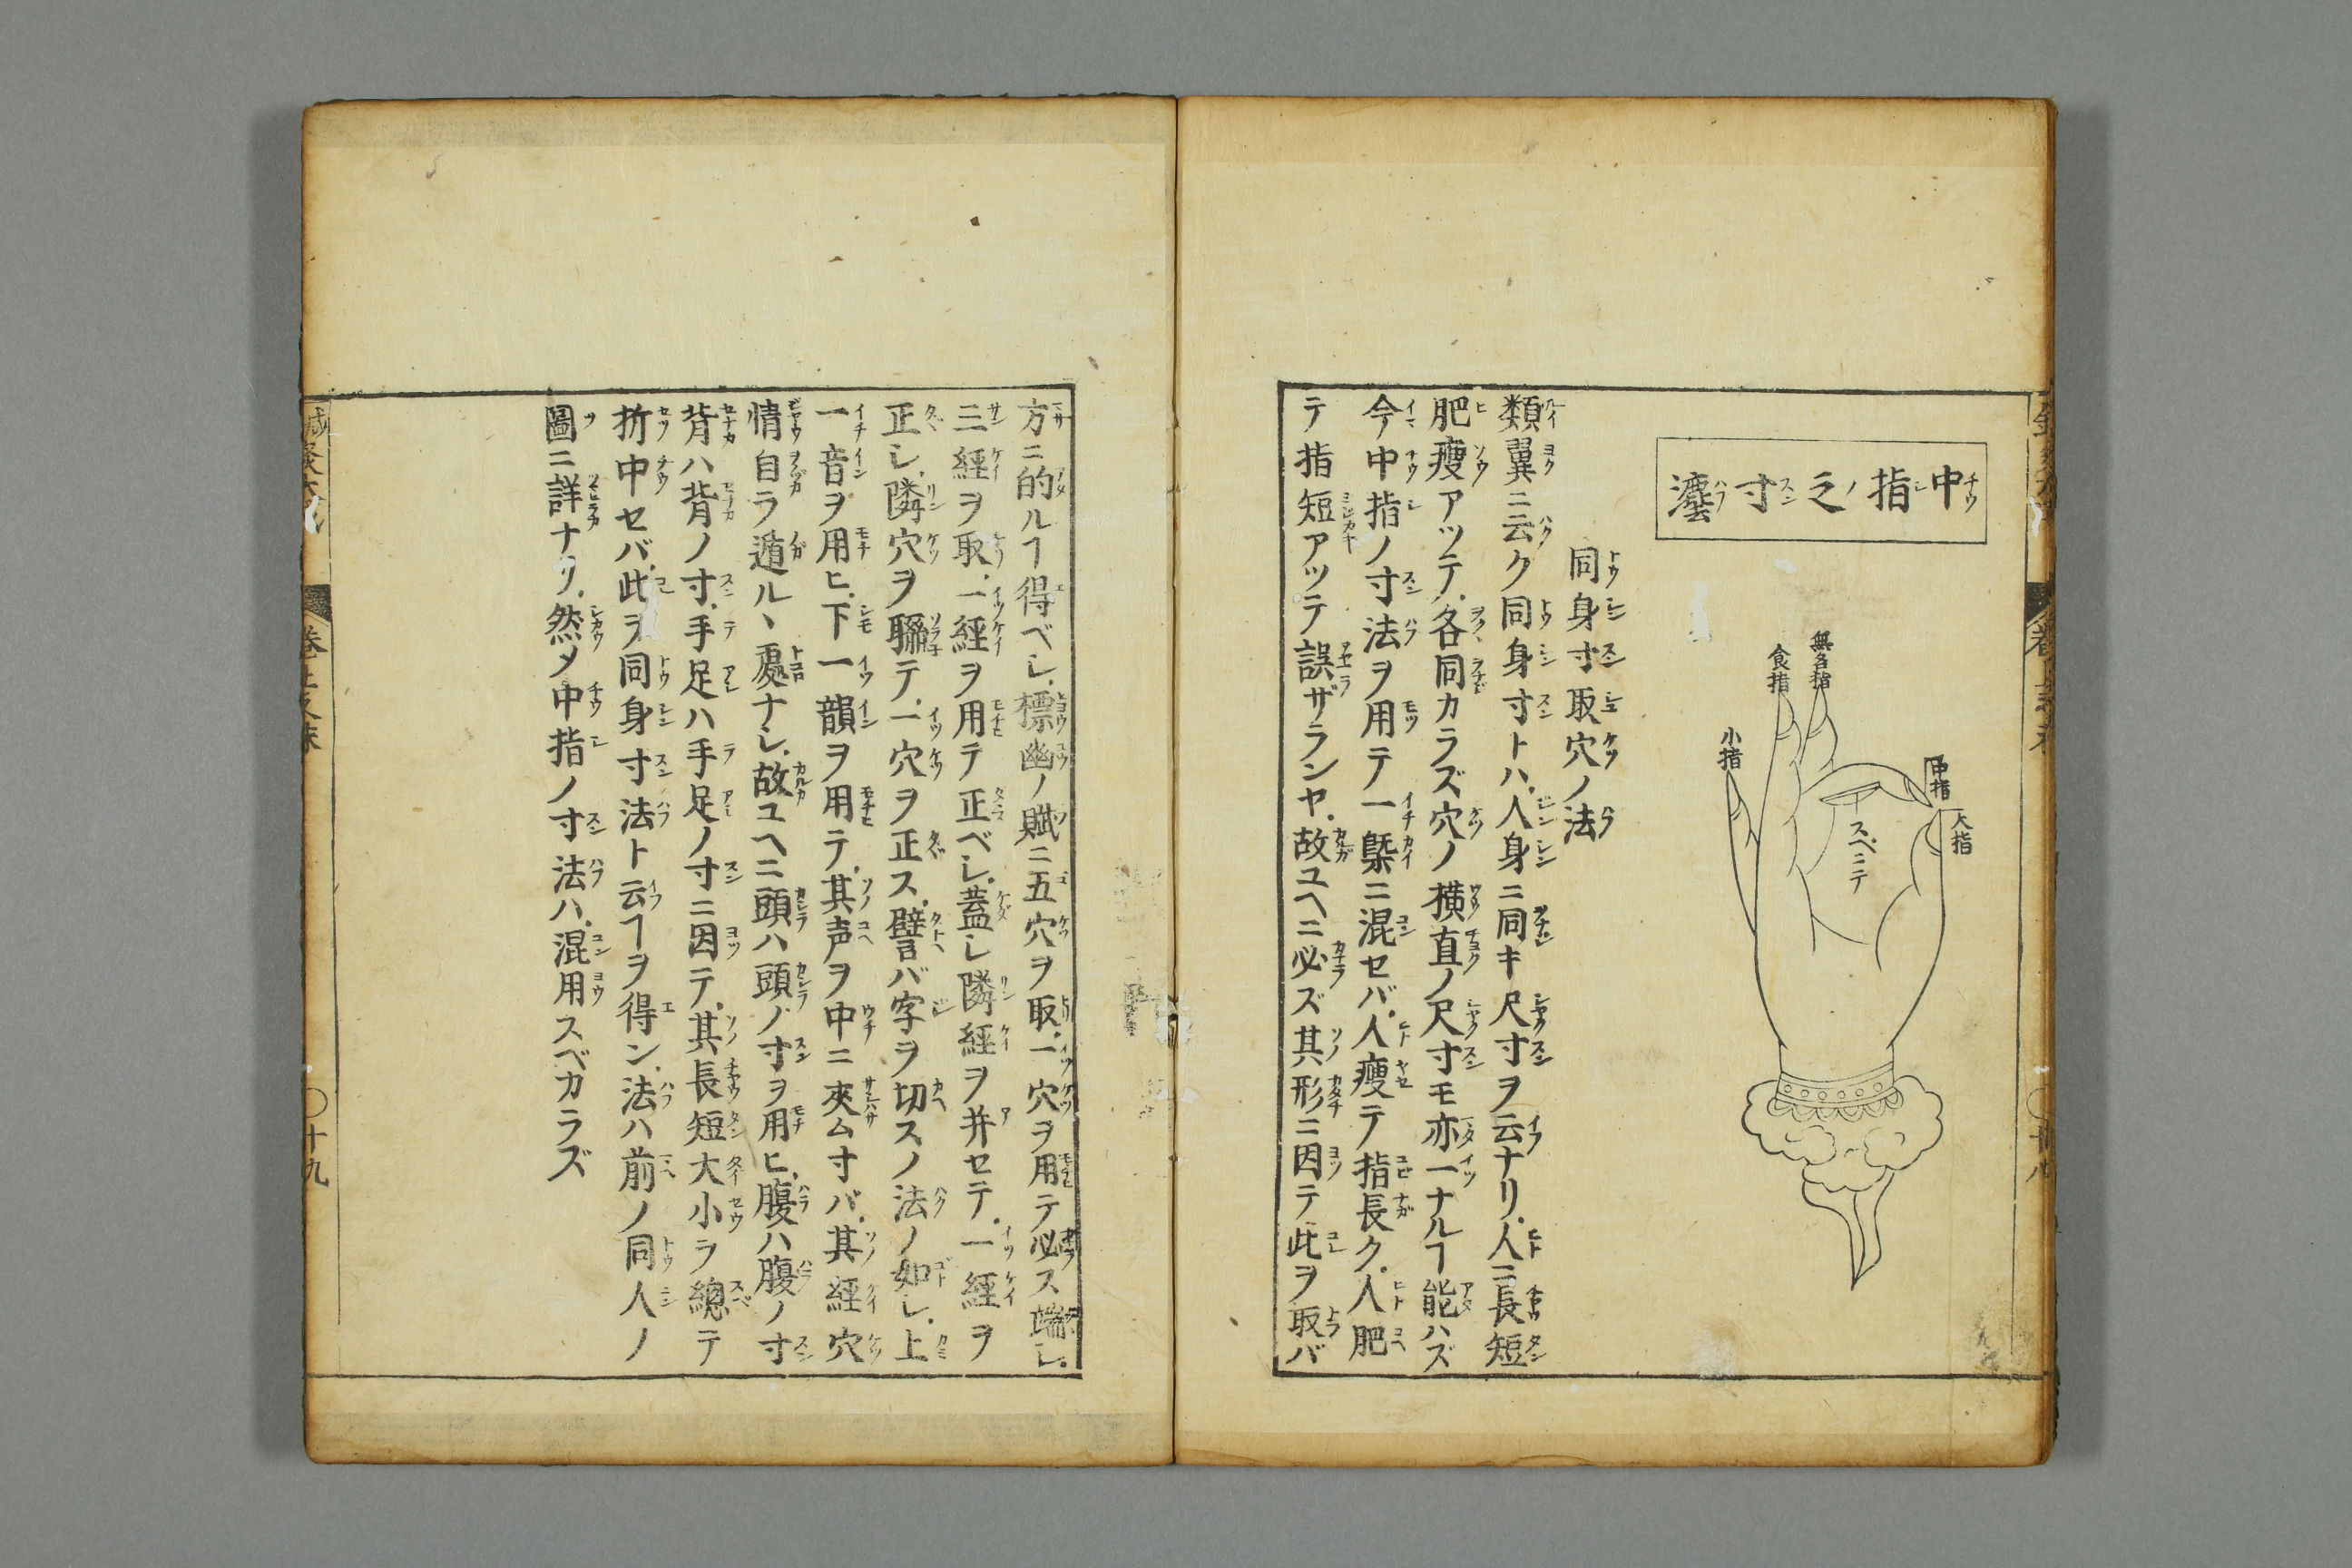 中指之寸灋
無名指
食指
小指
中指
大指
スベニテ
同身寸取穴ノ法
類翼ニ云ク同身寸トハ人身ニ同キ尺寸ヲ云ナリ人ニ長短
肥瘦アツテ各同カラズ穴ノ横直ノ尺寸モ亦一ナルヿ能ハズ
今中指ノ寸法ヲ用テ一槩ニ混セバ人瘦テ指長ク人肥
テ指短アツテ誤ザランヤ故ユヘニ必ズ其形ニ因テ此ヲ取バ
方ニ的ルヿ得ベシ標幽ノ賦ニ五穴ヲ取一穴ヲ用テ必ス端シ
三經ヲ取一經ヲ用テ正ベシ蓋シ隣經ヲ并セテ一經ヲ
正シ隣穴ヲ聯テ一穴ヲ正ス譬バ字ヲ切スノ法ノ如シ上
一音ヲ用ヒ下一韻ヲ用テ其声ヲ中ニ夾ム寸バ其經穴
情自ラ遁ルヽ處ナシ故ユヘニ頭ハ頭ノ寸ヲ用ヒ腹ハ腹ノ寸
背ハ背ノ寸手足ハ手足ノ寸ニ因テ其長短大小ラ總テ
折中セバ此ヲ同身寸法ト云ヿヲ得ン法ハ前ノ同人ノ
圖ニ詳ナリ然メ中指ノ寸法ハ混用スベカラズ
十九